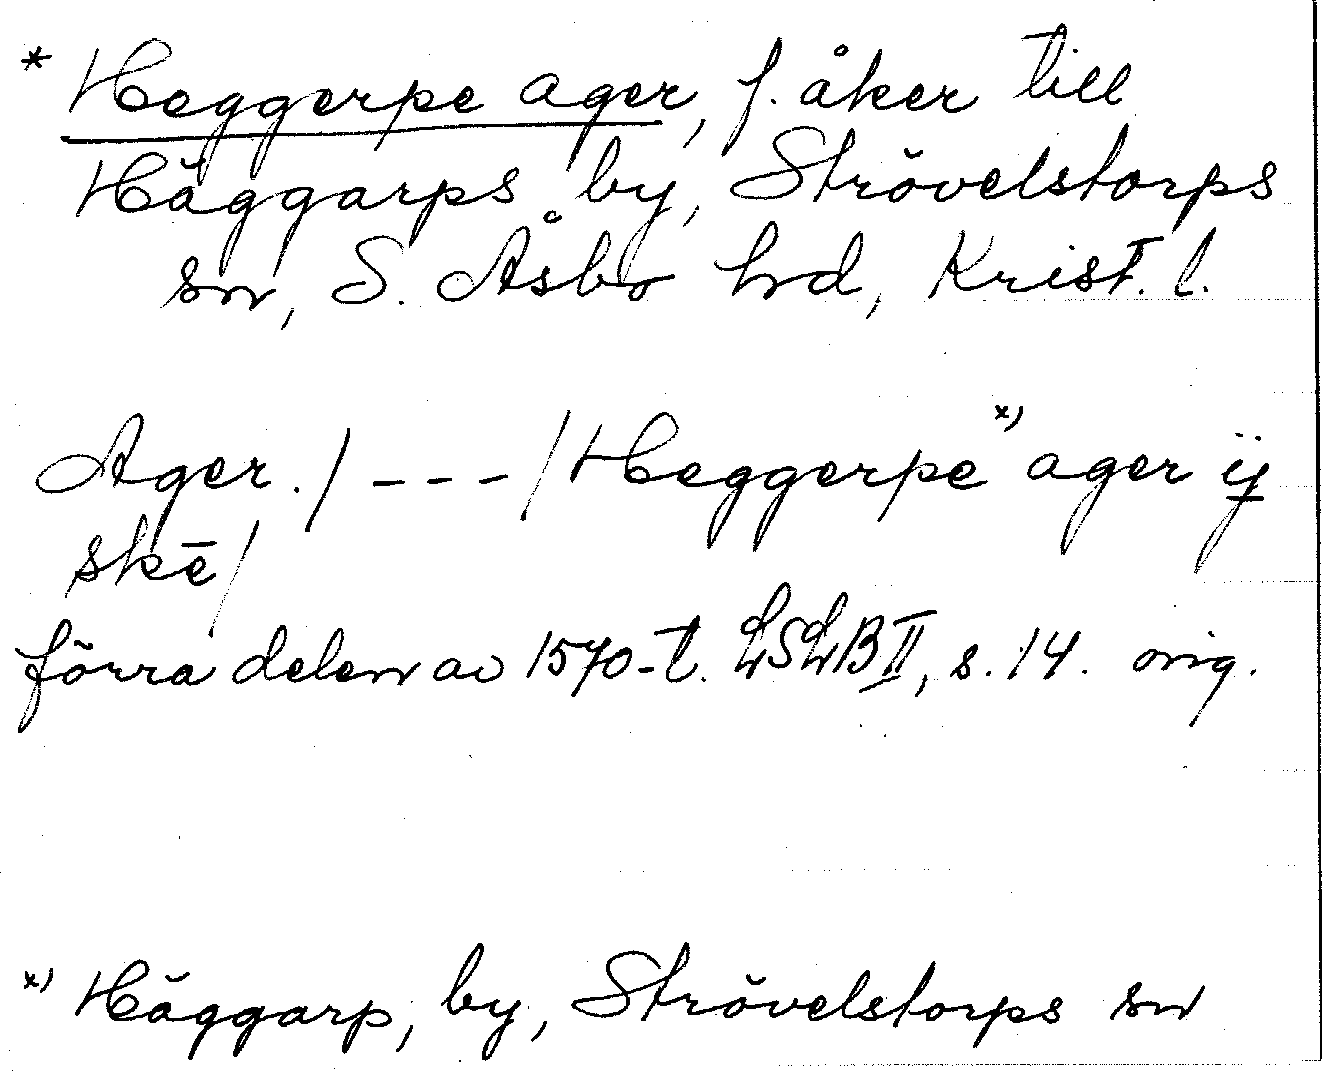 * Heggerpe ager, f. åker till
Häggarps by, Strövelstorps
sn, S. Åsbo hd, Krist. l.
Ager. / - - - / Heggerpe x) ager ij
skē /
förra delen av 1570-t. LSLB II, s. 14. orig.
x) Häggarp, by, Strövelstorps sn